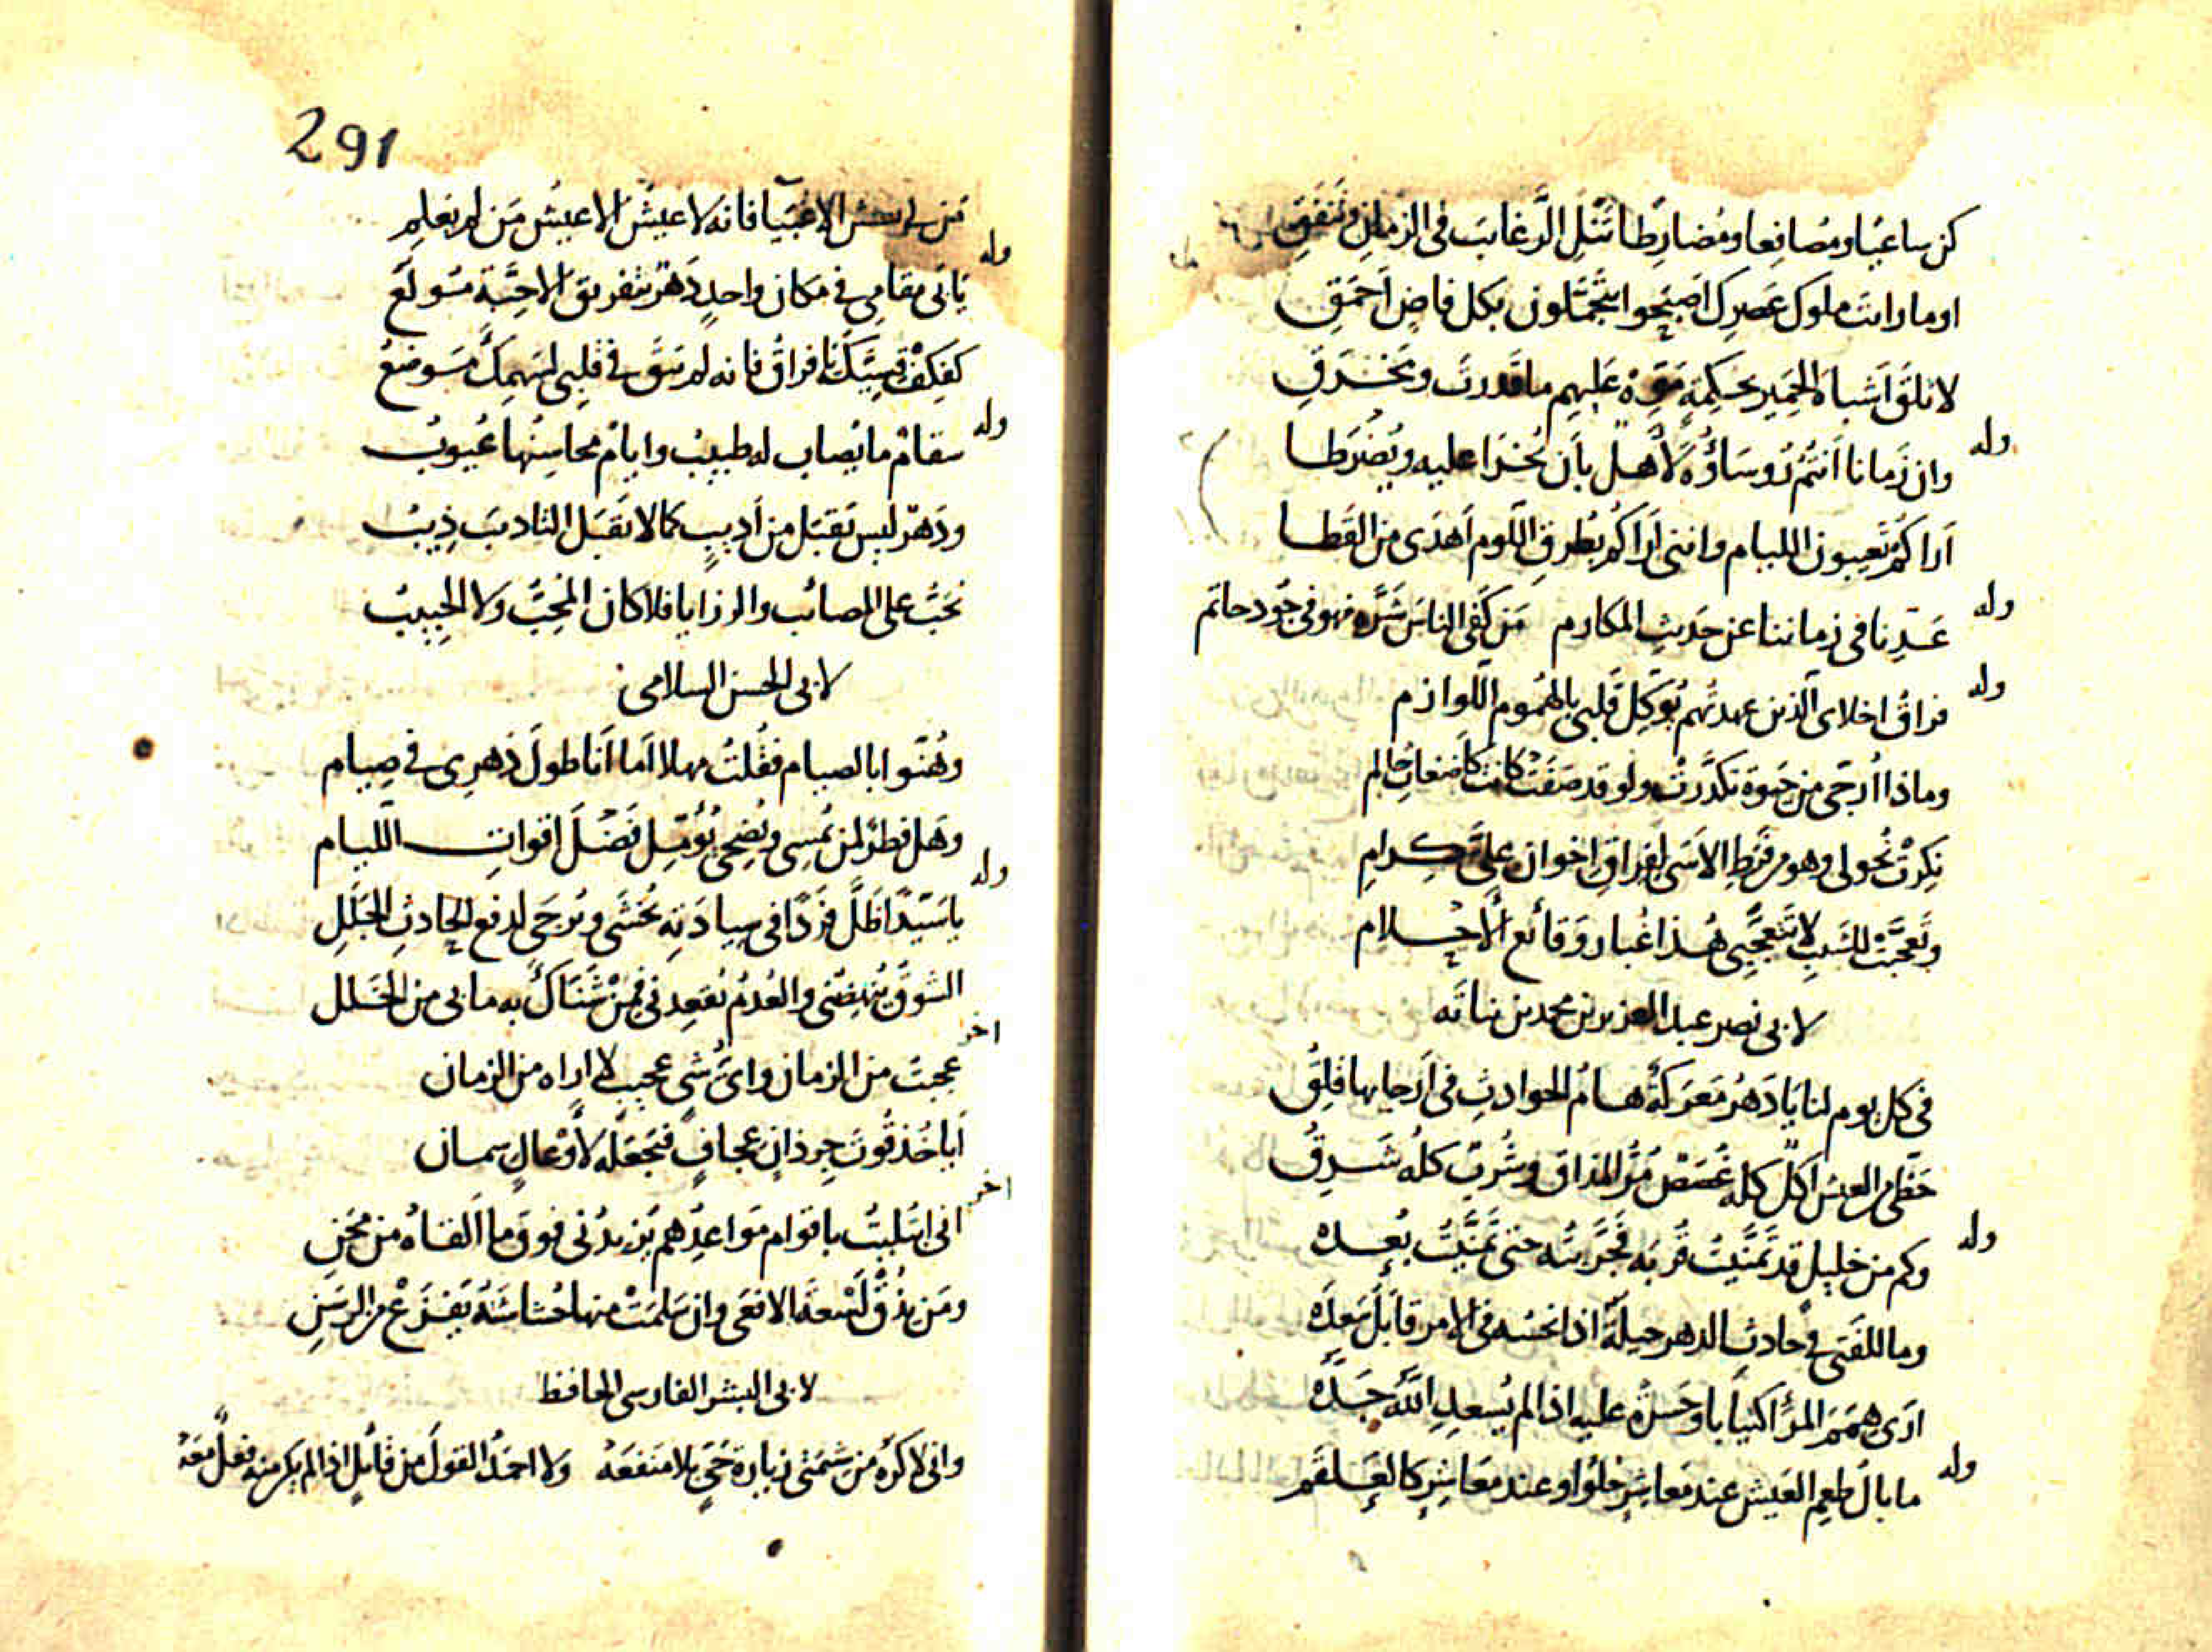 كن ساعيا ومصافعا ومضارطا تنل الرغائب في الزمان وتنفق
او ما رايت ملوك عصرك اصبحوا يتجملون بكل قاض احمق
لا تلق اشباه الحمير بحكمة موه عليهم ما قدرت ومخرق
وله
وان زمانا انتم روساؤه لاهل بان يخرا عليه ويضرطا
اراكم تعيبون الليام وانني اراكم بطرق اللوم اهدى من القطا
وله
عدنا في زماننا عن حديث المكارم من كفى الناس شره فهو في جود حاتم
وله
فراق اخلاي الذين عهدتهم يوكل قلبي بالهموم اللوازم
وماذا ارجي من حيوة تكدرت ولو قد صفت كانت كاضغاث حالم
نكرت نحولي وهو من فرط الاسى لفراق اخوان علي كرام
وتعجبت للشيب لا تتعجبي هذا غبار وقائع الاحلام
لابي نصر عبد العزيز بن محمد بن نباته
في كل يوم لنا يا دهر معركة هام الحوادث في ارجايها فلق
حظي من العيش اكل كله غصص مر المذاق وشرب كله شرق
وله
وكم من خليل قد تمنيت قربه فجربته حتى تمنيت بعده
وما للفتى في حادث الدهر حيلة اذا نحسه في الامر قابل سعده
ارى همم المرء اكتيابا وحسرة عليه اذا لم يسعد الله جده
وله
ما بال طعم العيش عند معاشر حلوا وعند معاشر كالعلقم
291
من لي بعيش الاغبيا فانه لا عيش الا عيش من لم يعلم
وله
يابى مقامي في مكان واحد دهر بتفريق الاحبة مولع
كفكف قسيك يا فراق فانه لم يبق في قلبي لسهمك موضع
وله
سقام ما يصاب له طبيب وايام محاسنها عيوب
ودهر ليس يقبل من اديب كما لا يقبل التاديب ذيب
نحب على المصائب والرزايا فلا كان المحب ولا الحبيب
لابي الحسن السلامي
وهنوا بالصيام فقلت مهلا اما انا طول دهري في صيام
وهل فطر لمن يمسي ويضحي يؤمل فضل اقوات الليام
وله
يا سيدا ظل فردا في سيادته يخشى ويرجى لدفع الحادث الجلل
الشوق ينهضني والعدم يقعدني فمن شناك به ما بي من الخلل
اخر
عجبت من الزمان واي شي عجيب لا اراه من الزمان
اياخذ قوت جرذان عجاف فيجعله لاوعال سمان
اخر
اني ابتليت باقوام مواعدهم يزيدني فوق ما القاه من محن
ومن يذق لسعة الافعى وان سلمت منها حشاشته يفزع من الرسن
لابي البشر الفارسي الحافظ
واني لاكره من شيمتي زيارة حي بلا منفعه ولا احمد القول من قايل اذا لم يكن منه فعل معه